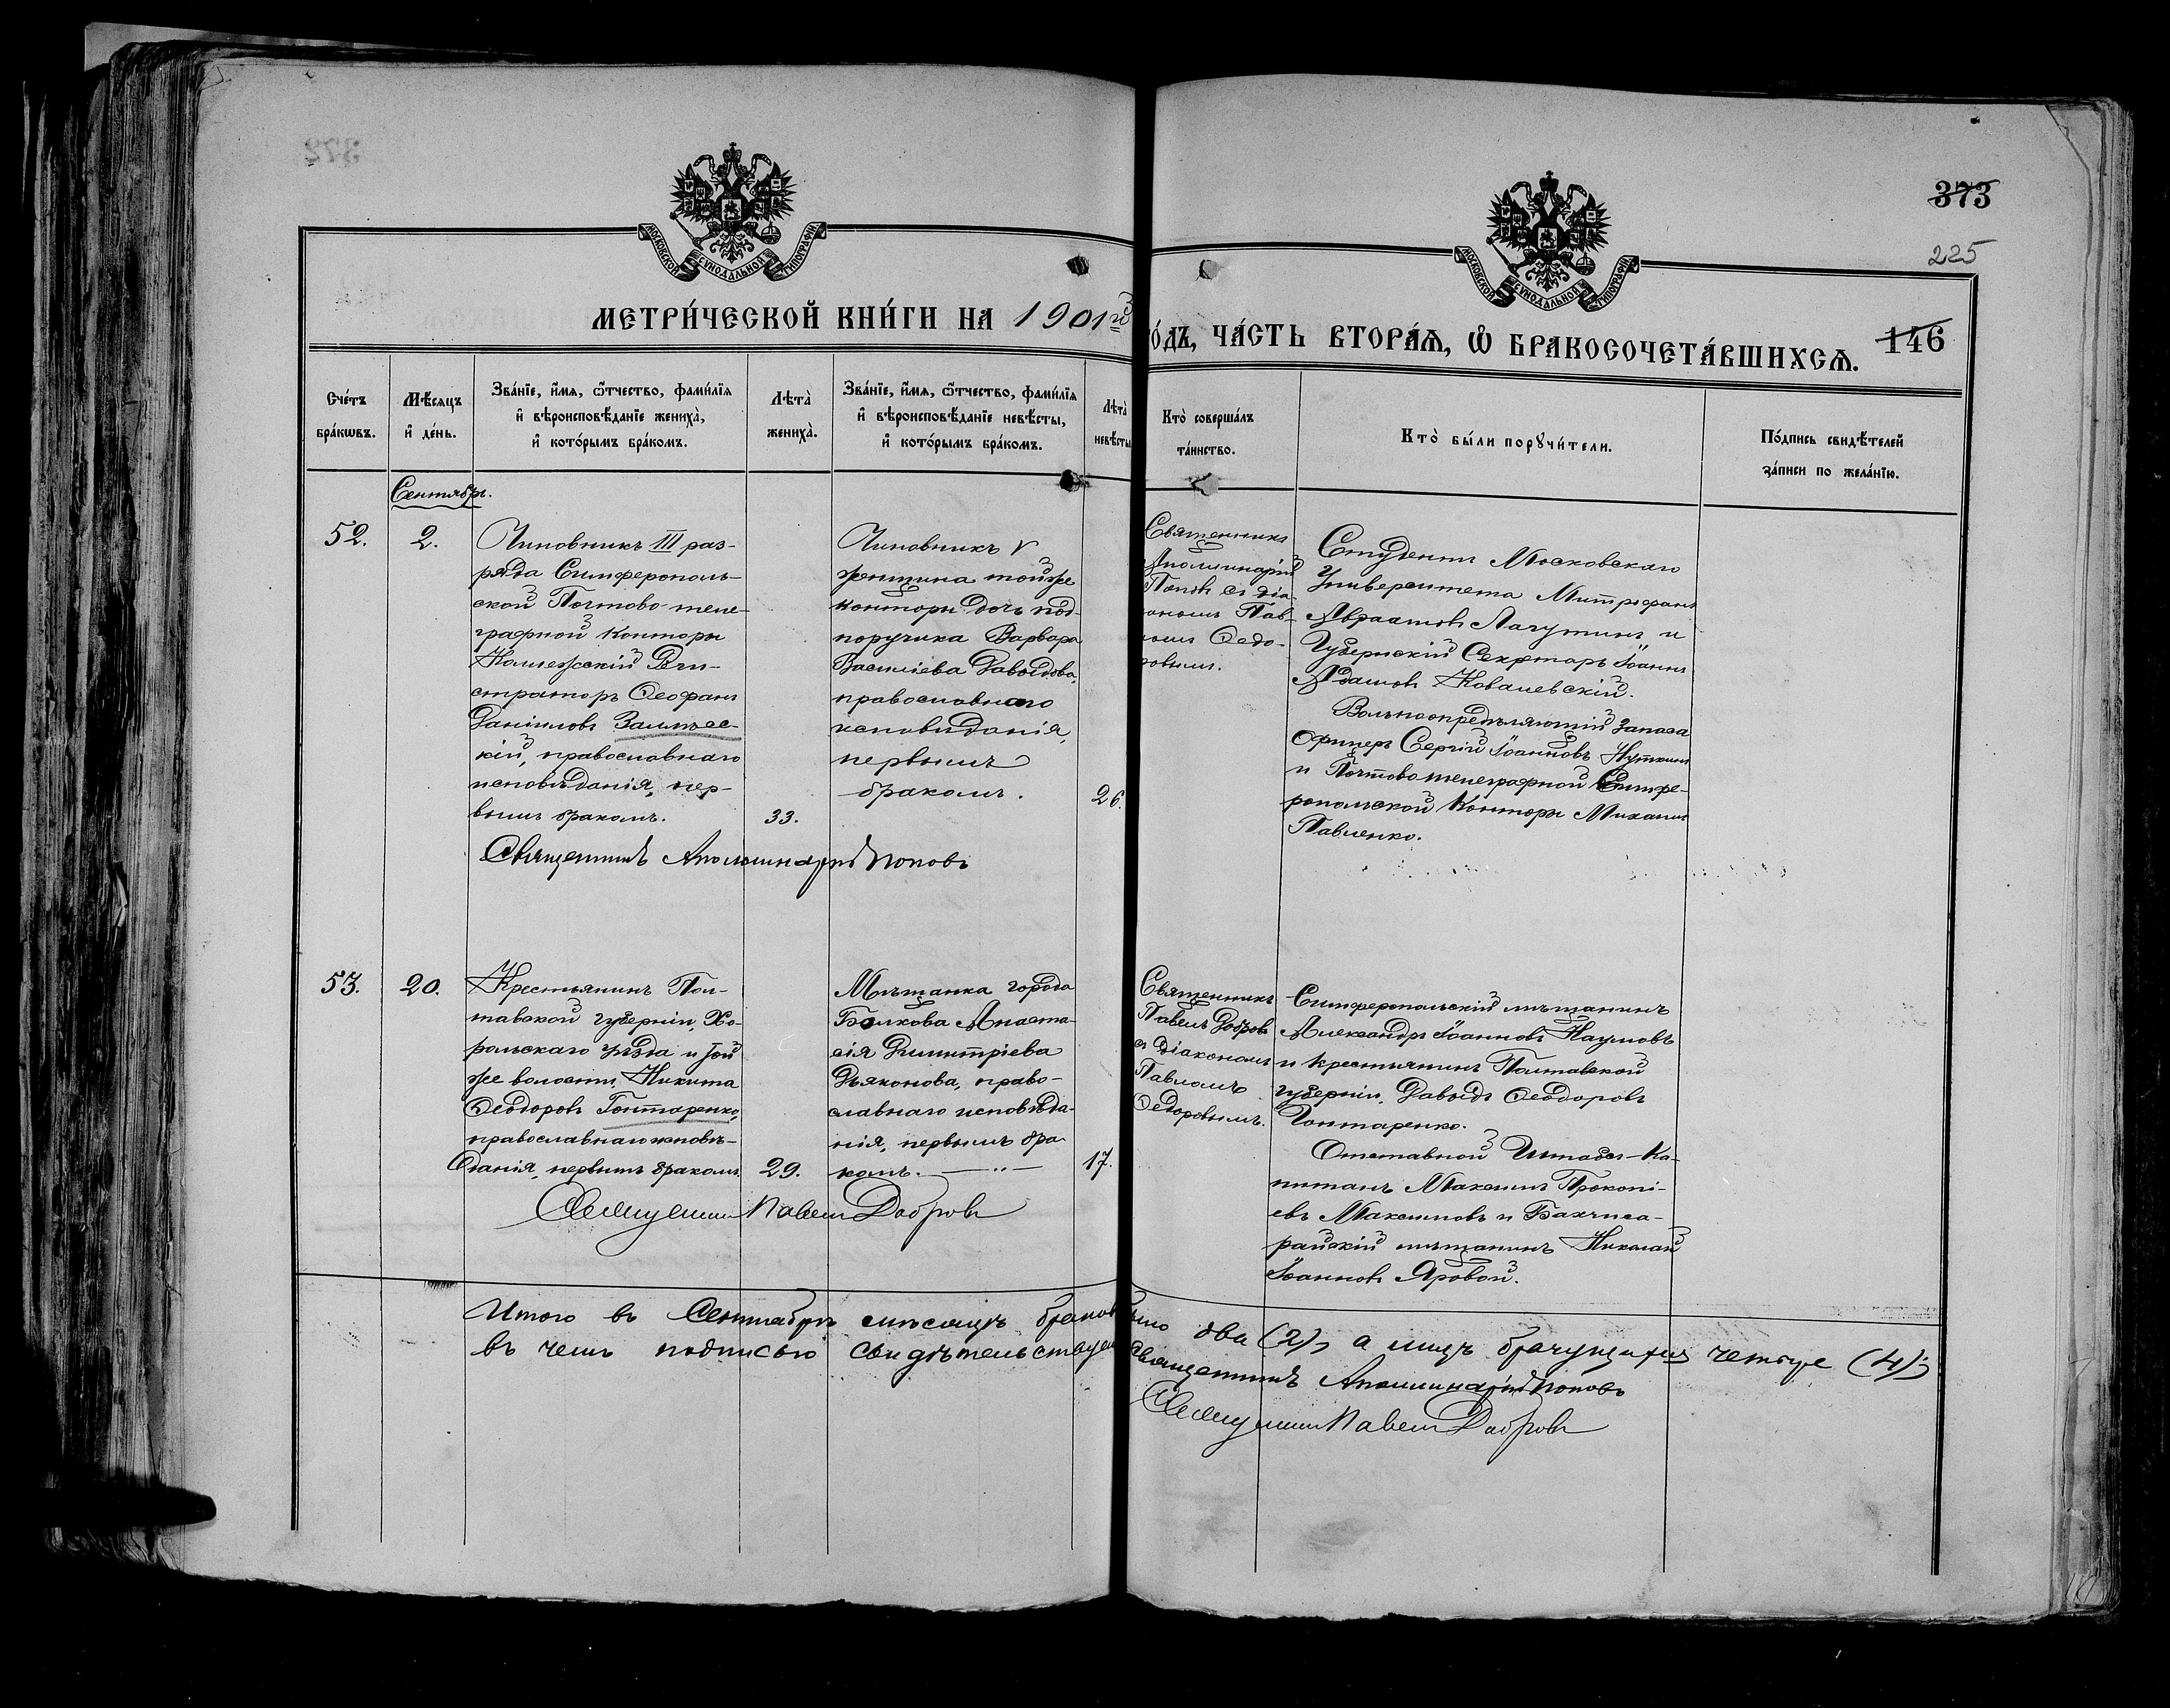 373
225
МОСКОВСКОЙ СѴНОДАЛЬНОЙ ТИПОГРАФІИ
МОСКОВСКОЙ СѴНОДАЛЬНОЙ ТИПОГРАФІИ
МЕТРИ́ЧЕСКОЙ КНИ́ГИ НА 1901й
ГО́ДЪ, ЧА́СТЬ ВТОРА́Ѧ, Ѡ҆ БРАКОСОЧЕТА́ВШИХСѦ. 146
Сче́тъ бра́кѡвъ.
Мѣ́сяцъ и҆ де́нь.
Зва́нїе, и҆́мѧ, ѻ҆́тчество, фами́лїѧ
и҆ вѣроисповѣ́данїе жениха̀,
и҆ кото́рымъ бра́комъ.
Лѣта̀ жениха̀.
Зва́нїе, и҆́мѧ, ѻ҆́тчество, фами́лїѧ
и҆ вѣроисповѣ́данїе невѣ́сты,
и҆ кото́рымъ бра́комъ.
Лѣта̀ невѣ́сты
Кто̀ соверша́лъ
та́инство.
Кто̀ бы́ли порꙋчи́тели.
По́дпись свидѣ́телей
за́писи по жела́нїю.
Сентябрь.
52.
2.
Чиновникъ III раз-
ряда Симферополь-
ской Почтово-теле-
графной Конторы
Коллежскій Реги-
страторъ Ѳеофанъ
Даніиловъ Залѣсс-
кій, православнаго
исповѣданія, пер-
вымъ бракомъ.
33.
Чиновникъ V
женщина той же
конторы дочь под-
поручика Варвара
Василіева Давыдова,
православнаго
исповѣданія,
первымъ
бракомъ.
26.
Священникъ
Аполлинарій
Поповъ съ діа-
кономъ Пав-
ломъ Ѳедо-
ровымъ.
Студентъ Московскаго
Университета Митрофанъ
Авраамовъ Лагутинъ и
Губернскій Секретарь Іоаннъ
Адамовъ Ковалевскій.
Вольноопредѣляющій запаса
Офицеръ Сергій Іоанновъ
и Почтово-телеграфной Симфе-
ропольской Конторы Михаилъ
Павленко.
Священникъ Аполлинарій Поповъ
53.
20.
Крестьянинъ Пол-
тавской губерніи, Хо-
рольскаго уѣзда и той
же волости, Никита
Ѳеодоровъ Гонтаренко,
православнаго исповѣ-
данія, первымъ бракомъ.
29.
Мѣщанка города
Анаста-
сія Димитріева
Дьяконова, право-
славнаго исповѣда-
нія, первымъ бра-
комъ.
17.
Священникъ
Павелъ Добровъ
съ діакономъ
Павломъ
Ѳедоровымъ.
Симферопольскій мѣщанинъ
Александръ Іоанновъ Наумовъ
и крестьянинъ Полтавской
губерніи, Давыдъ Ѳеодоровъ
Гонтаренко.
Отставной Штабсъ-Ка-
питанъ Максимъ Прокопі-
евъ Максимовъ и Бахчиса-
райскій мѣщанинъ Николай
Іоанновъ Яровой.
Священникъ Павелъ Добровъ
Итого въ Сентябрѣ мѣсяцѣ браковъ было два (2), а лицъ брачущихся четыре (4);
въ чемъ подписью свидѣтельствуемъ Священникъ Аполлинарій Поповъ
Священникъ Павелъ Добровъ